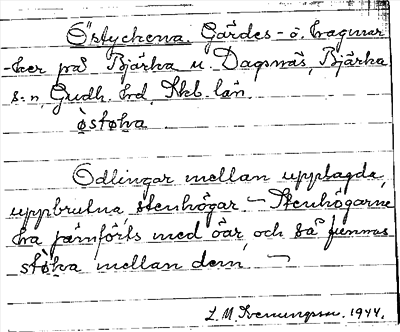 Östyckena. Gärdes- o. hagmar-
ker på Bjärka u. Dagsnäs, Bjärka
s:n, Gudh. hd, Skb. län.
östøka
Odlingar mellan upplagda,
uppbrutna stenhögar. — Stenhögarne
ha jämförts med öar, och så finnas
støka mellan dem. —
L. M. Svenungsson. 1944.